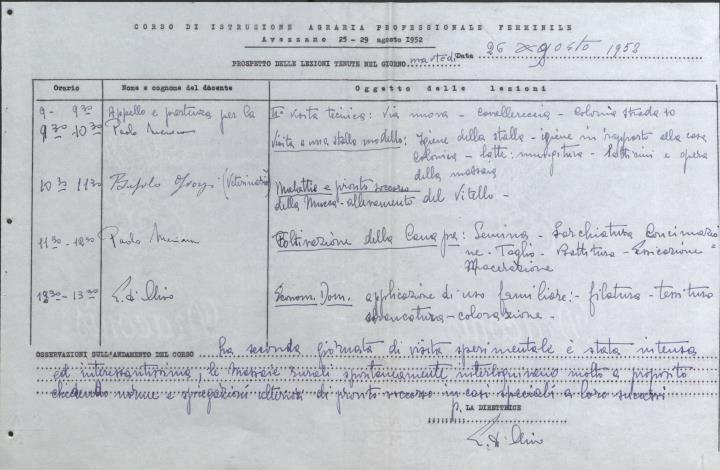 CORSO DI ISTRUZIONE AGRARIA PROFESSIONALE FEMMINILE
Avezzano 25 - 29 agosto 1952
PROSPETTO DELLE LEZIONI TENUTE NEL GIORNO martedì Data 26 agosto 1952
Orario Nome e cognome del docente Oggetto delle lezioni
9 - 9 30 Appello e partenza per la IIª visita tecnica: Via nuova - Cavallereccia - Colonia strada 10
9 30 - 10 30 Paolo Visita a una stalla modello: Igiene della stalla - igiene in rapporto alla casa
colonica - latte: mungitura - latticini e opera
della massaia
10 30 11 30 (Veterinario) Malattie e pronto soccorso
della Mucca - allevamento del Vitello -
11 30 - 12 30 Paolo Coltivazione della Canapa: Semina - Sarchiatura Concimazio
ne - Taglio - Battitura - Essicazione -
Macerazione
12 30 - 13 30 Econom. Dom. applicazione di uso familiare: - filatura - tessitura
- colorazione -
OSSERVAZIONI SULL'ANDAMENTO DEL CORSO La seconda giornata di visita sperimentale è stata intensa
ed interessantissima, le Massaie rurali spontaneamente interloquivano molto a proposito
chiedendo norme e spiegazioni ulteriori di pronto soccorso in casi speciali a loro successi
p. LA DIRETTRICE